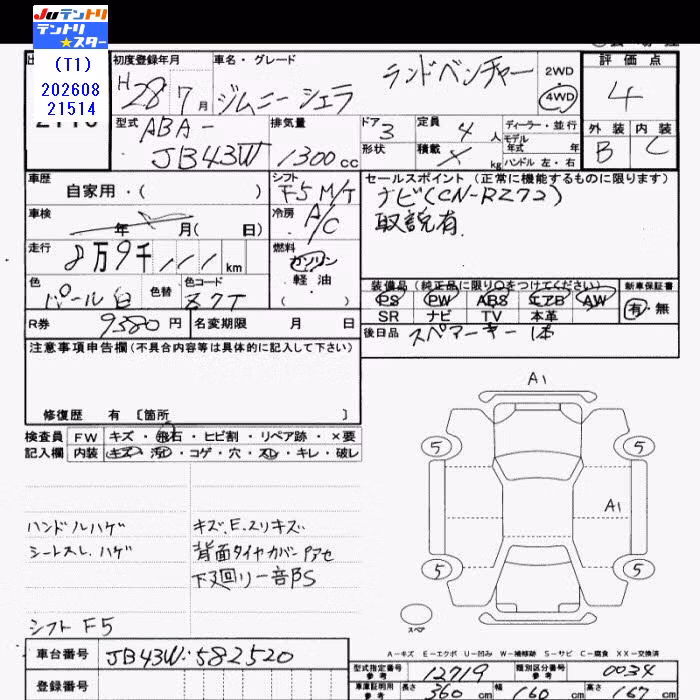 Juテントリ
テントリ
★スター
(T1)
202608
21514
初度登録年月
車名・グレード
評価点
H28年7月
ジムニーシエラ
ランドベンチャー
2WD
4WD
4
型式
ABA-
JB43W
排気量
1300cc
ドア 3
形状
定員 4人
積載 × kg
ディーラー・並行
モデル
年式 年
ハンドル 左・右
外装 内装
B C
車歴
自家用・( )
シフト
F5 M/T
セールスポイント(正常に機能するものに限ります)
ナビ(CN-RZ72)
取説有
車検
年 月( 日)
冷房
A/C
走行
8万9千 km
燃料
ガソリン
軽油
( )
色
パール白
色替
色コード
Z7T
装備品(純正品に限り○をつけてください)
新車保証書
PS PW ABS エアB AW
有・無
SR ナビ TV 本革
R券 9380円
名変期限 月 日
後日品 スペアキー 1本
注意事項申告欄(不具合内容等は具体的に記入して下さい)
修復歴 有 〔箇所 〕
検査員
記入欄
FW キズ・飛石・ヒビ割・リペア跡・×要
内装 キズ・汚れ・コゲ・穴・スレ・キレ・破レ
A1
5
5
A1
5
5
ハンドルハゲ
キズ、E、スリキズ
シートスレ、ハゲ
背面タイヤカバーPアセ
下廻り一部S
シフト F5
スペア
A-キズ E-エクボ U-凹み W-補修跡 S-サビ C-腐食 XX-交換済
車台番号 JB43W-582520
登録番号
型式指定番号
参考
12719
類別区分番号
参考
0034
車庫証明用
参考
長さ 360 cm 幅 160 cm 高さ 67 cm